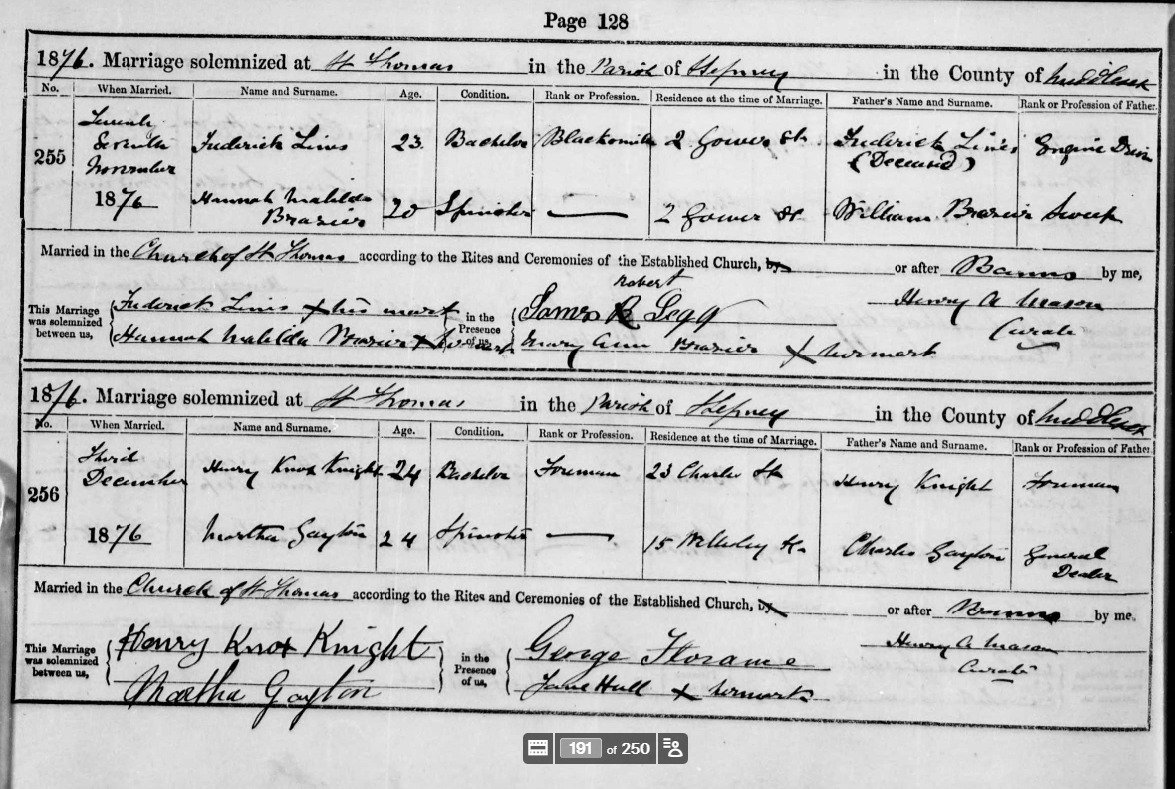 Page 128
1876. Marriage solemnized at St Thomas in the Parish of Stepney in the County of Middlesex
No. When Married. Name and Surname. Age. Condition. Rank or Profession. Residence at the time of Marriage. Father's Name and Surname. Rank or Profession of Father.
255 Twenty Seventh November Frederick Lines 23 Bachelor Blacksmith 2 Gower St Frederick Lines (Deceased) Engine Driver
1876 Hannah Matilda Brazier 20 Spinster — 2 Gower St. William Brazier Sweep
Married in the Church of St Thomas according to the Rites and Ceremonies of the Established Church, by or after Banns by me,
Henry A Mason
Curate
This Marriage was solemnized between us,
Frederick Lines × his mark
Hannah Matilda Brazier × her mark
in the Presence of us,
Robert
James R Legg
Mary Ann Brazier × her mark
1876. Marriage solemnized at St Thomas in the Parish of Stepney in the County of Middlesex
No. When Married. Name and Surname. Age. Condition. Rank or Profession. Residence at the time of Marriage. Father's Name and Surname. Rank or Profession of Father.
256 Third December Henry Knox Knight 24 Bachelor Foreman 23 Charles St Henry Knight Foreman
1876 Martha Gayton 24 Spinster — 15 St. Charles Gayton General Dealer
Married in the Church of St Thomas according to the Rites and Ceremonies of the Established Church, by or after Banns by me,
Henry A Mason
Curate
This Marriage was solemnized between us,
Henry Knox Knight
Martha Gayton
in the Presence of us,
George
Jane Hull × her mark
191 of 250